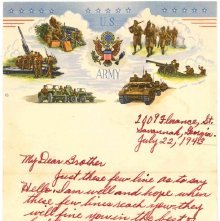 U.S.
ARMY
2009 Florance, St.
Savannah, Georgia.
July 22, 1943
My Dear Brother
Just these few line as to say
Hello. I am well and hope when
these few lines reach you they
will fine you in the best of